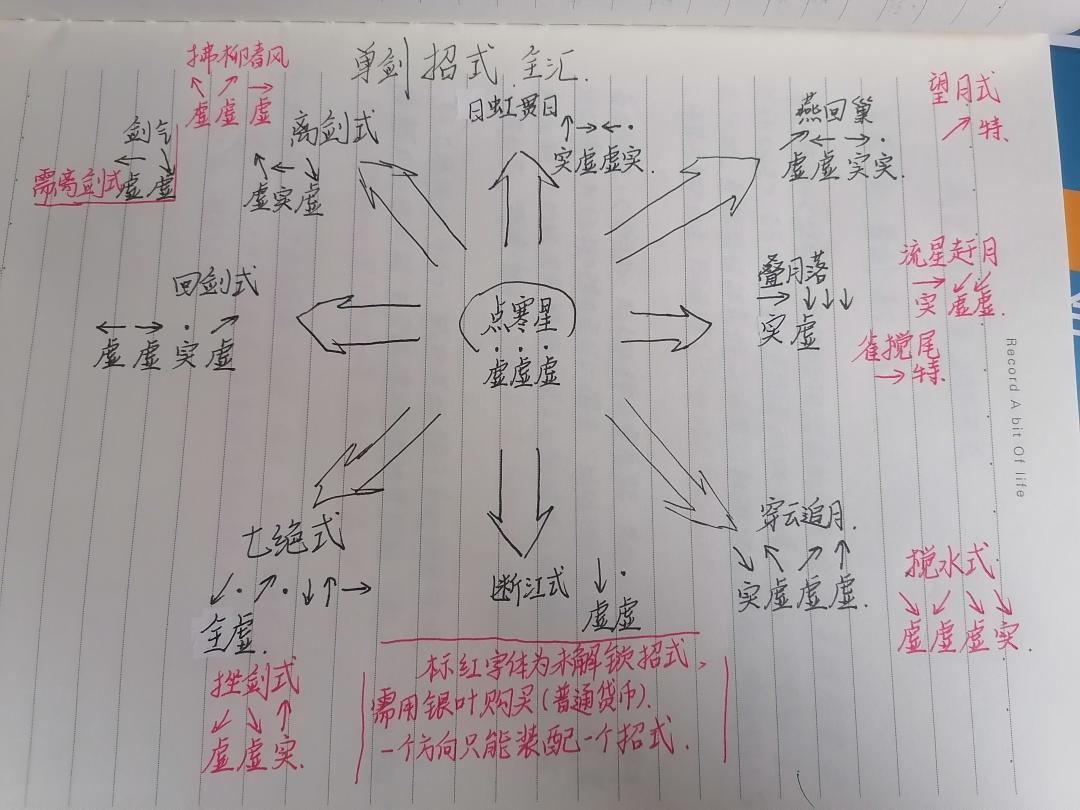 单剑招式 全汇.
拂柳春风
↖ ↗ →
虚 虚 虚
剑气
← ↘
虚 虚
需离剑式
离剑式
↖ ← ↘
虚 实 虚
白虹贯日
↑ → ← ·
实 虚 虚 实.
燕回巢
↗ ← → ·
虚 虚 实 实.
望月式
↗ 特.
回剑式
← → · ↗
虚 虚 实 虚
点寒星
· · ·
虚 虚 虚
叠月落
→ ↓ ↓ ↓
实 虚
流星赶月
→ ↙ ↙
实 虚 虚.
雀搅尾
→ 特.
七绝式
↙ · ↗ · ↓ ↑ →
全虚.
挫剑式
↙ ↘ ↑
虚 虚 实.
断江式
↓ ·
虚 虚
穿云追月.
↘ ↖ ↗ ↑
实 虚 虚 虚.
搅水式
↘ ↙ ↘ ↘
虚 虚 虚 实.
标红字体为未解锁招式,
需用银叶购买(普通货币).
一个方向只能装配一个招式.
Record A bit Of life